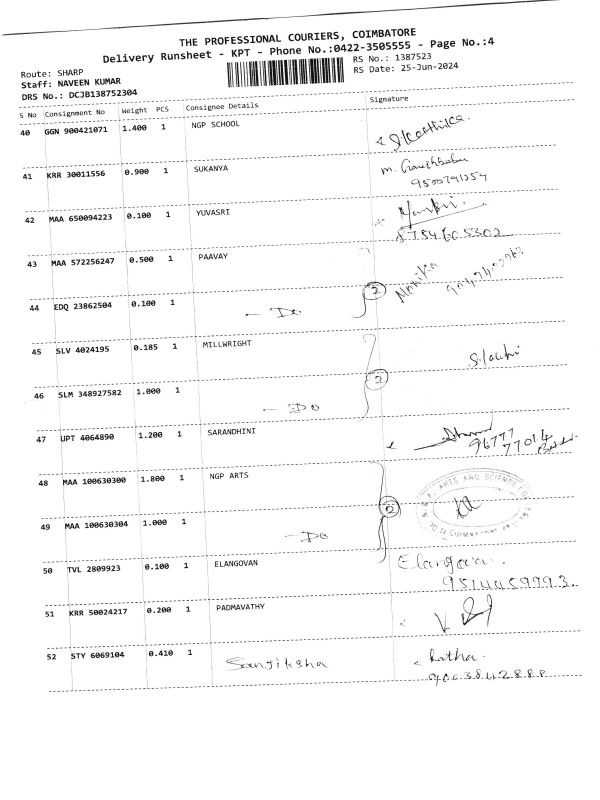 THE PROFESSIONAL COURIERS, COIMBATORE
Delivery Runsheet - KPT - Phone No.:0422-3505555 - Page No.:4
Route: SHARP
RS No.: 1387523
Staff: NAVEEN KUMAR
RS Date: 25-Jun-2024
DRS No.: DCJB138752304
S No Consignment No Weight PCS Consignee Details Signature
40 GGN 900421071 1.400 1 NGP SCHOOL
41 KRR 30011556 0.900 1 SUKANYA
42 MAA 650094223 0.100 1 YUVASRI
8754605302
43 MAA 572256247 0.500 1 PAAVAY Monika
44 EDQ 23862504 0.100 1 - Do 2
45 SLV 4024195 0.185 1 MILLWRIGHT
46 SLM 348927582 1.000 1 - Do 2
47 UPT 4064890 1.200 1 SARANDHINI 96777
77014
48 MAA 100630300 1.800 1 NGP ARTS ARTS AND SCIENCE
49 MAA 100630304 1.000 1 - Do 2
50 TVL 2809923 0.100 1 ELANGOVAN Elangovan.
9514459993
51 KRR 50024217 0.200 1 PADMAVATHY
52 STY 6069104 0.410 1 Sanjiksha Latha.
9003842888